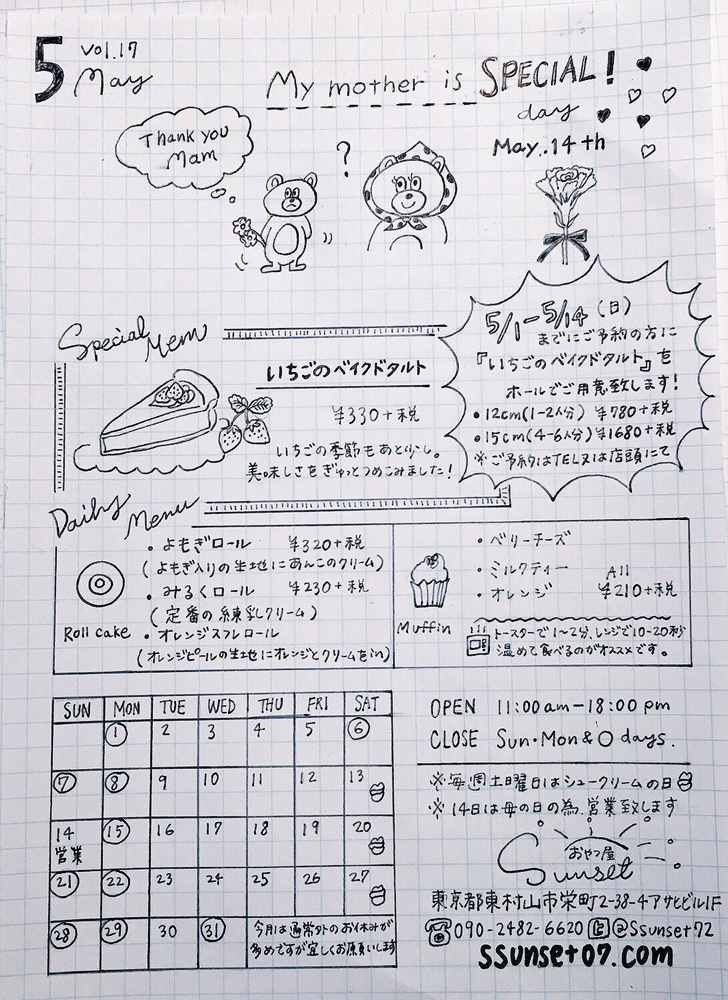 5 vol.17
May
My mother is SPECIAL!
day
May.14th
Thank you
Mam
?
Special Menu
いちごのベイクドタルト
¥330+税
いちごの季節もあと少し。
美味しさをぎゅっとつめこみました!
5/1-5/14(日)
までにご予約の方に
『いちごのベイクドタルト』を
ホールでご用意致します!
・12cm(1-2人分) ¥780+税
・15cm(4-6人分) ¥1680+税
※ご予約はTEL又は店頭にて
Daily Menu
Roll cake
・よもぎロール ¥320+税
(よもぎ入りの生地にあんこのクリーム)
・みるくロール ¥230+税
(定番の練乳クリーム)
・オレンジスフレロール
(オレンジピールの生地にオレンジとクリームをin)
Muffin
・ベリーチーズ
・ミルクティー
・オレンジ
All
¥210+税
トースターで1~2分、レンジで10-20秒
温めて食べるのがオススメです。
SUN MON TUE WED THU FRI SAT
1 2 3 4 5 6
7 8 9 10 11 12 13
14 15 16 17 18 19 20
営業
21 22 23 24 25 26 27
28 29 30 31
今月は通常外のお休みが
多めですが宜しくお願いします
OPEN 11:00am-18:00pm
CLOSE Sun・Mon&○days.
※毎週土曜日はシュークリームの日
※14日は母の日の為、営業致します
おやつ屋
Sunset
東京都東村山市栄町2-38-4アサヒビル1F
090-2482-6620 @Ssunset72
ssunset07.com